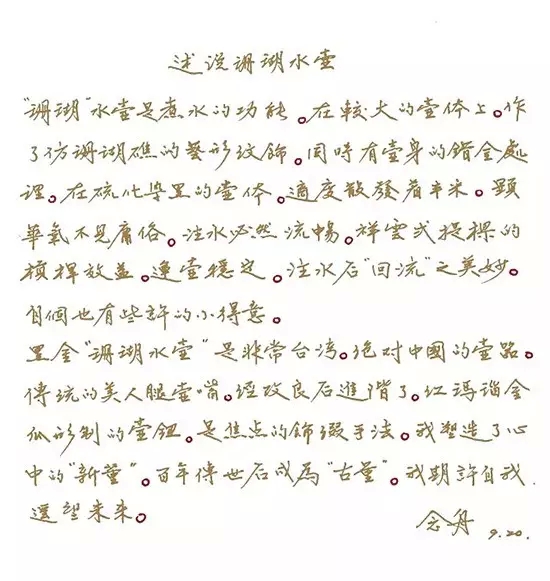 述说珊瑚水壶
"珊瑚"水壶是煮水的功能。在較大的壶体上。作
了仿珊瑚礁的藝形纹飾。同時有壶身的错金處
理。在硫化染黑的壶体。適度散發着丰采。顕
華氣不見庸俗。注水必然流暢。祥雲式提樑的
槓桿效益。連壶穩定。注水后"回流"之美妙。
自個也有些許的小得意。
黑金"珊瑚水壶"是非常台湾。绝对中國的壶路。
傳统的美人腿壶嘴。经改良后進階了。红瑪瑙金
瓜形制的壶鈕。是焦点的飾缀手法。我塑造了心
中的"新董"。百年傳世后成為"古董"。我期許自我.
遥望未来。
念舟 9.20.